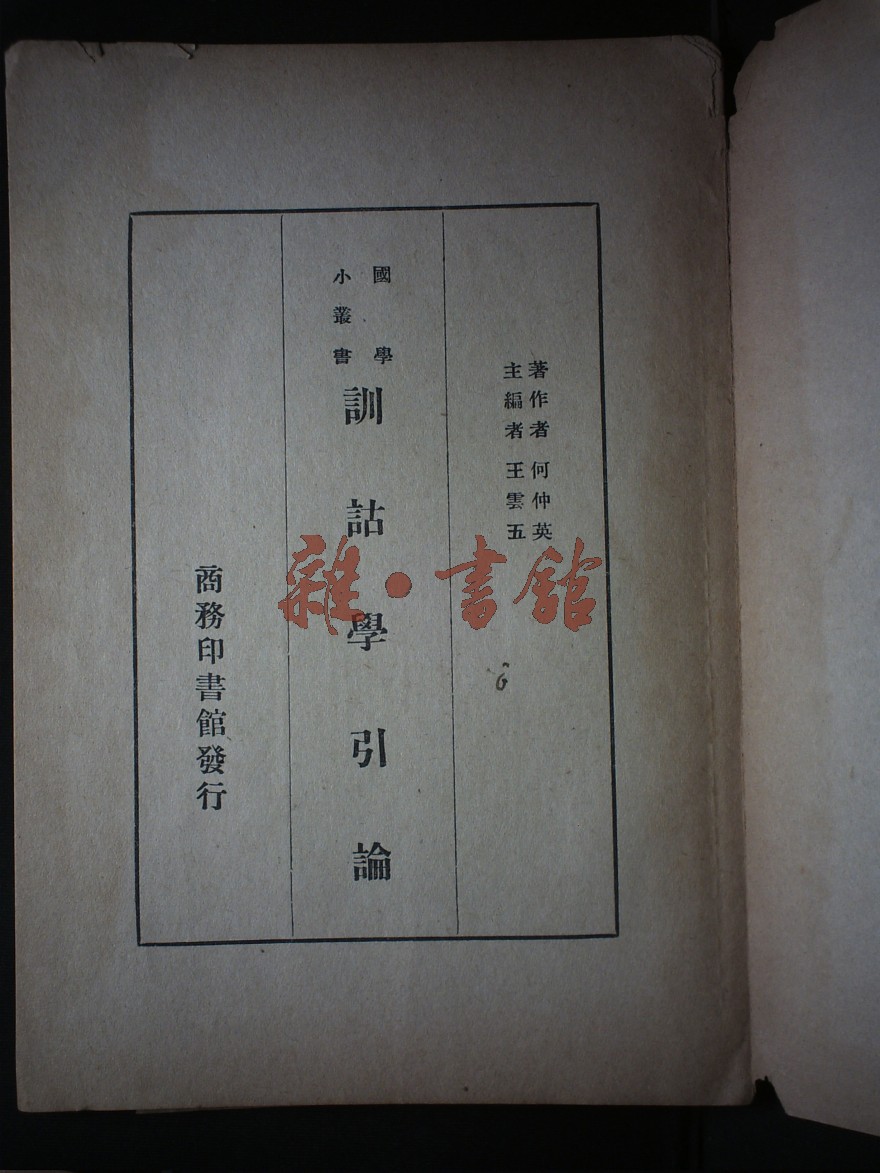 著作者何仲英
主編者王雲五
國學
小叢書
訓詁學引論
商務印書館發行
雜·書館